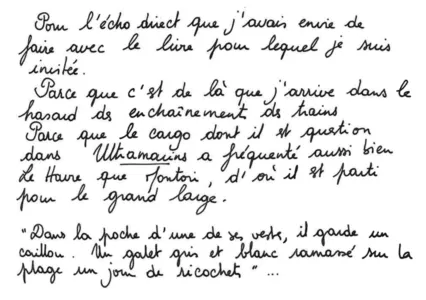 Pour l'écho direct que j'avais envie de
faire avec le livre pour lequel je suis
invitée.
Parce que c'est de là que j'arrive dans le
hasard des enchaînements des trains
Parce que le cargo dont il est question
dans Ultramarins a fréquenté aussi bien
Le Havre que Montoir, d'où il est parti
pour le grand large.
"Dans la poche d'une de ses vestes, il garde un
caillou. Un galet gris et blanc ramassé sur la
plage un jour de ricochets" ...